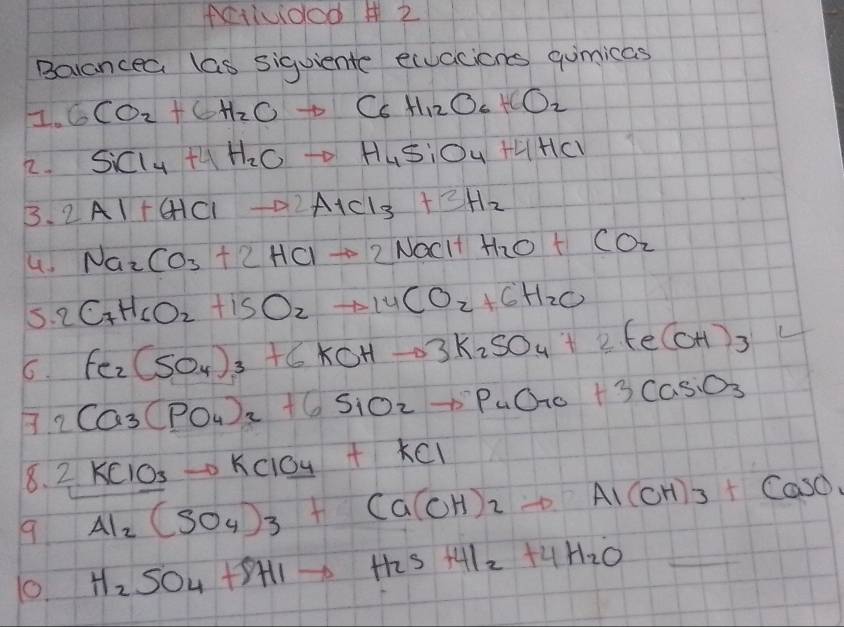 Actividad # 2
Balancea las siguiente ecuacions quimicas
1. 6CO₂ + 6H₂O → C₆H₁₂O₆ + 6O₂
2. SiCl₄ + 4H₂O → H₄SiO₄ + 4HCl
3. 2Al + 6HCl → 2AlCl₃ + 3H₂
4. Na₂CO₃ + 2HCl → 2NaCl + H₂O + CO₂
5. 2C₇H₆O₂ + 15O₂ → 14CO₂ + 6H₂O
6. Fe₂(SO₄)₃ + 6KOH → 3K₂SO₄ + 2Fe(OH)₃
7 2Ca₃(PO₄)₂ + 6SiO₂ → P₄O₁₀ + 3CaSiO₃
8. 2KClO₃ → KClO₄ + KCl
9 Al₂(SO₄)₃ + Ca(OH)₂ → Al(OH)₃ + CaSO
10. H₂SO₄ + 8HI → H₂S + 4I₂ + 4H₂O